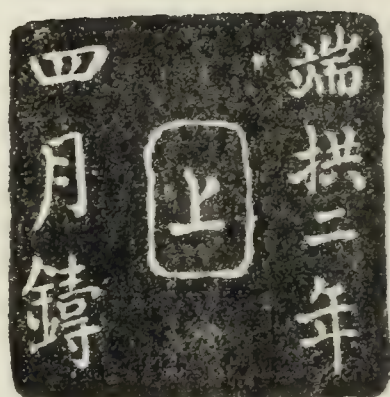 端拱二年
上
四月鑄